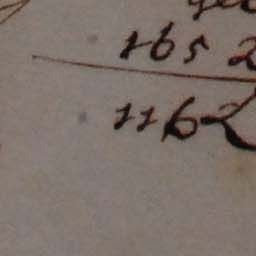 165 2
1162